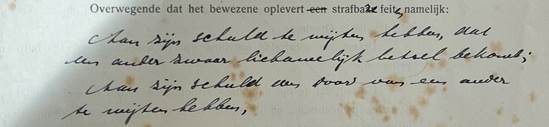 Overwegende dat het bewezene oplevert een strafbare feiten, namelijk:
Aan zijn schuld te wijten hebben, dat
een ander zwaar lichamelijk letsel bekomt;
Aan zijn schuld den dood van een ander
te wijten hebben,